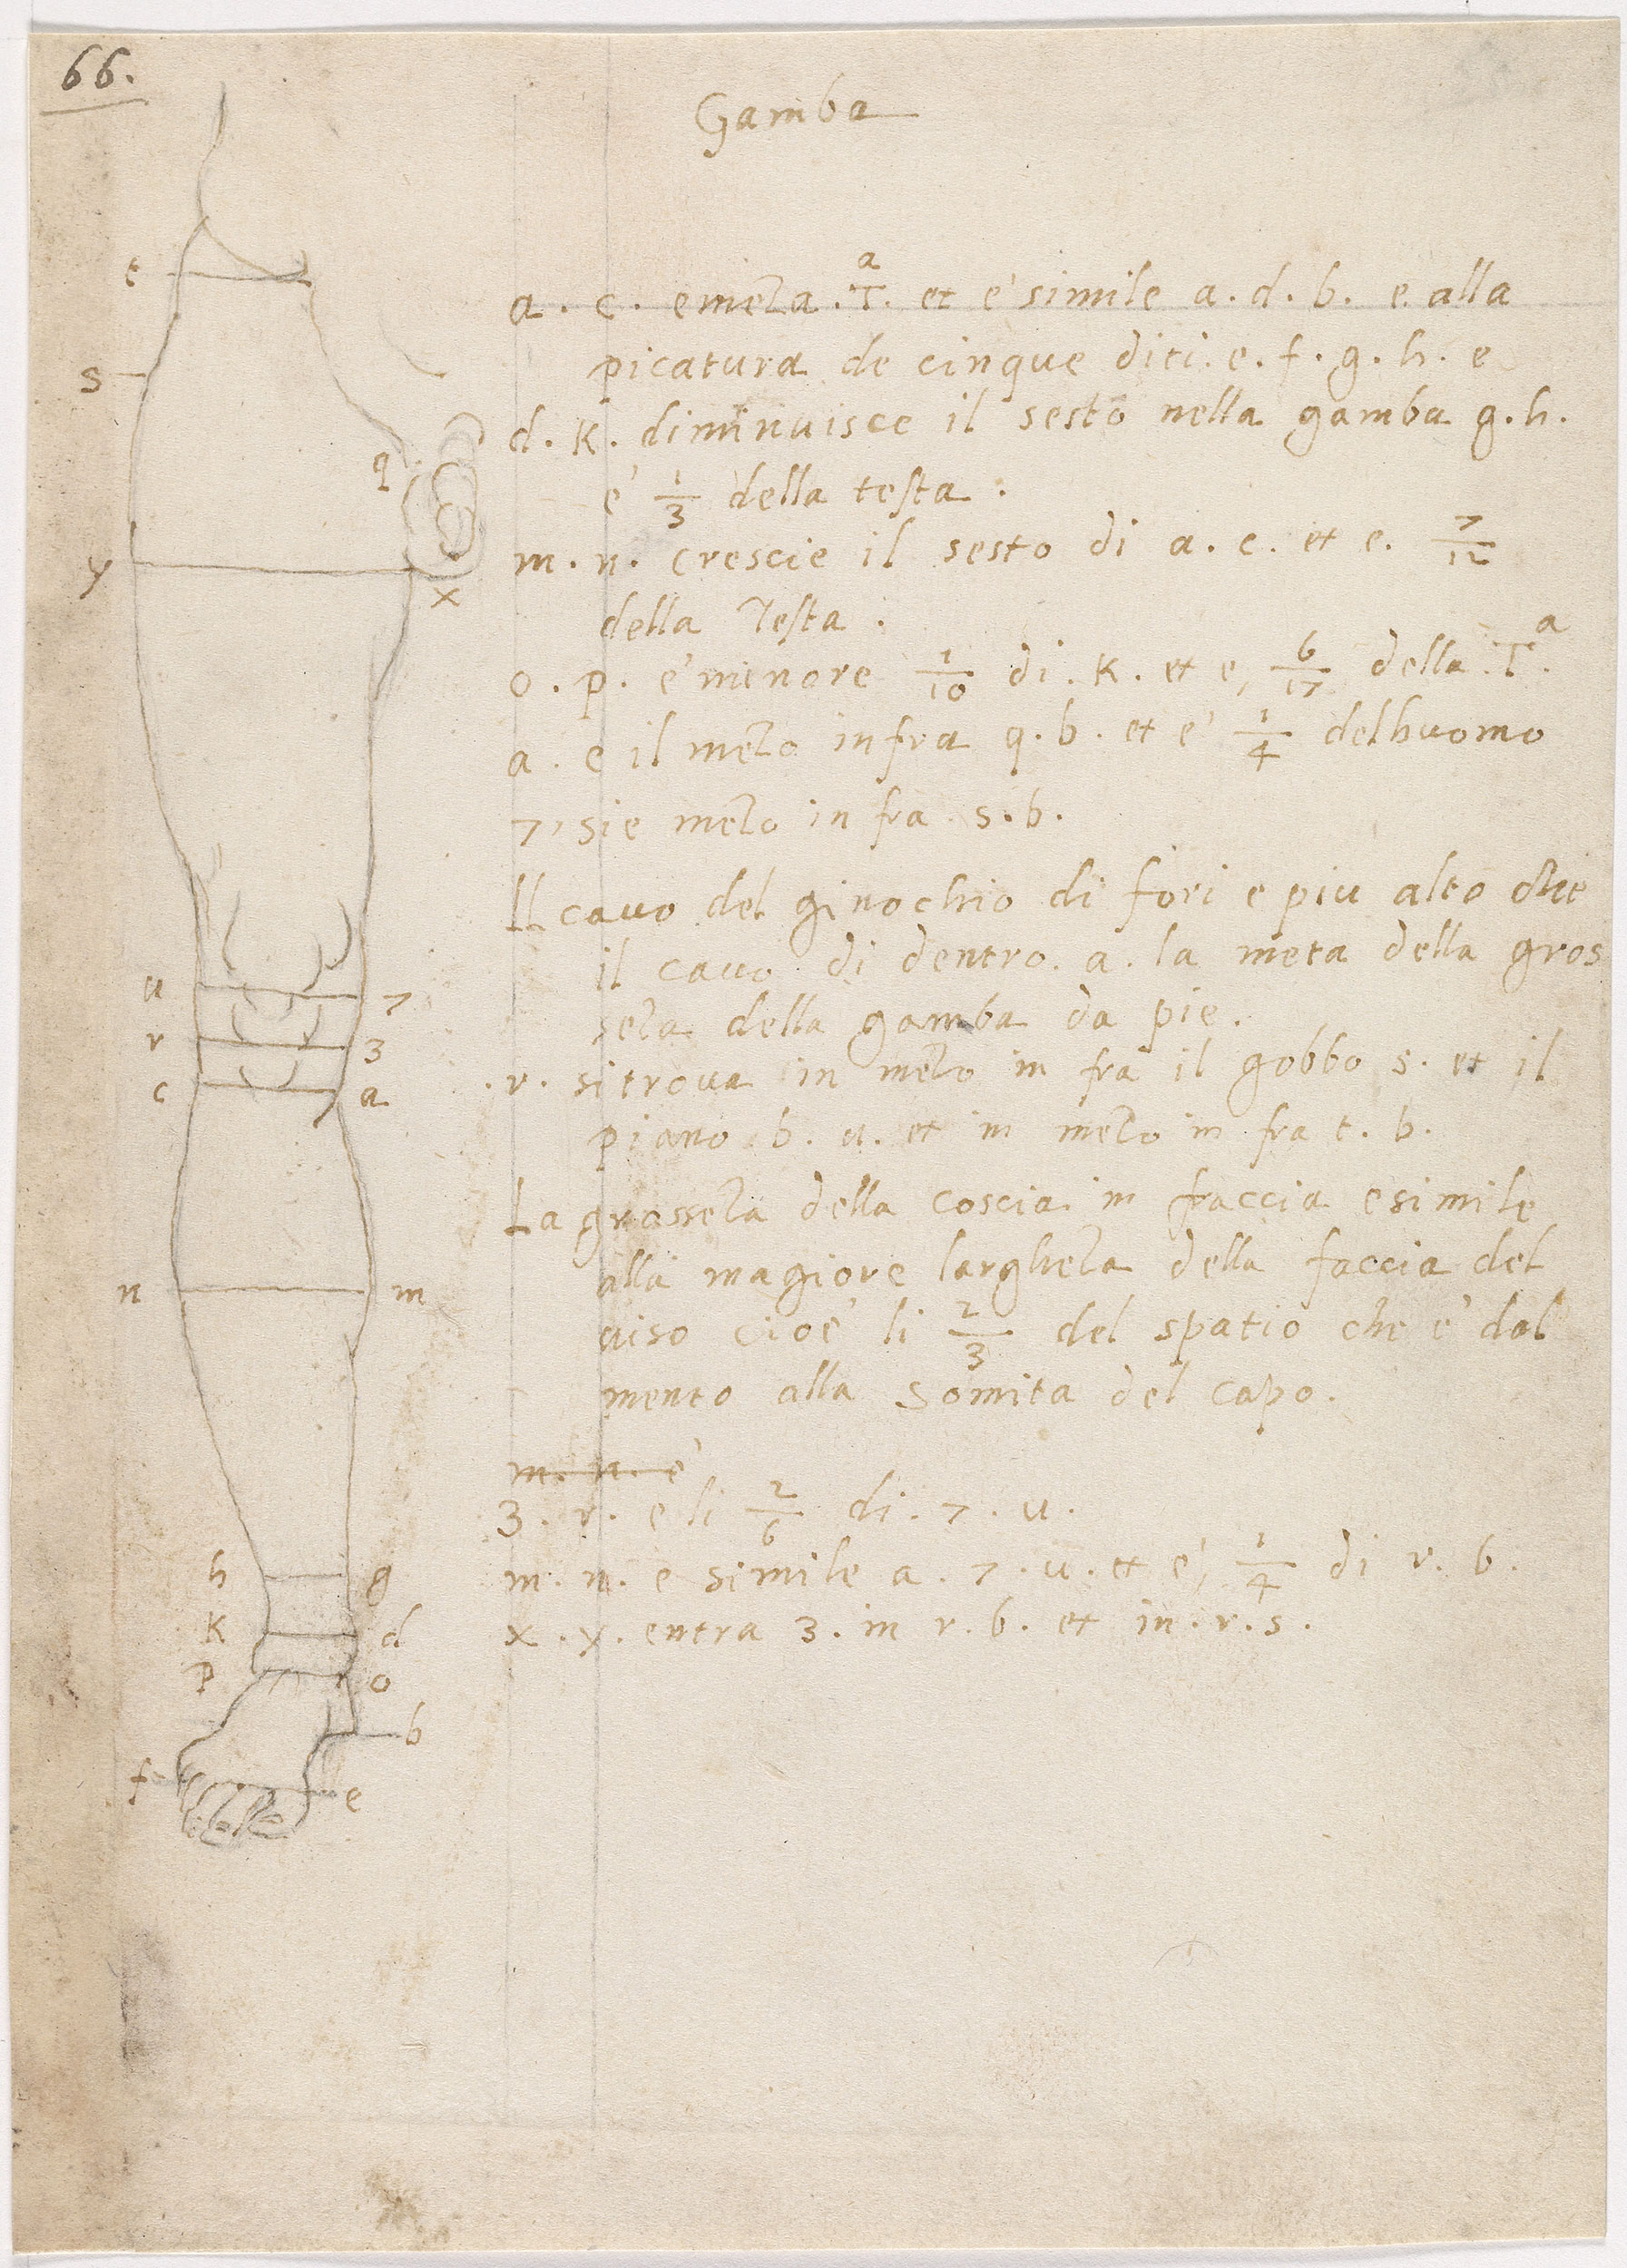 66.
Gamba
a. c. emeza. Tª. et e' simile a. d. b. e alla
picatura de cinque diti. e. f. g. h. e
d. K. diminuisce il sesto nella gamba g. h.
e' 1/3 della testa.
m. n. crescie il sesto di a. c. et e. 7/12
della Testa.
o. p. e' minore 1/10 di. K. et e, 6/17 della. Tª.
a. e il mezo infra q. b. et e' 1/4 delhuomo
7, sie mezo in fra s. b.
Il cavo del ginochio di fori e piu alto che
il cavo di dentro. a. la meta della gros
seza della gamba da pie.
.r. si trova in mezo in fra il gobbo s. et il
piano. b. u. et in mezo in fra t. b.
La grosseza della coscia in faccia e simile
alla magiore largheza della faccia del
viso cioe' li 2/3 del spatio che e' dal
mento alla somita del capo.
m. n. e'
3. r. e li 2/6 di. 7. u.
m. n. e simile a. 7. u. et e', 1/4 di r. b.
x. y. entra 3. in r. b. et in. r. s.
t
s
q
y
x
u 7
r 3
c a
n m
h g
K d
p o
b
f e